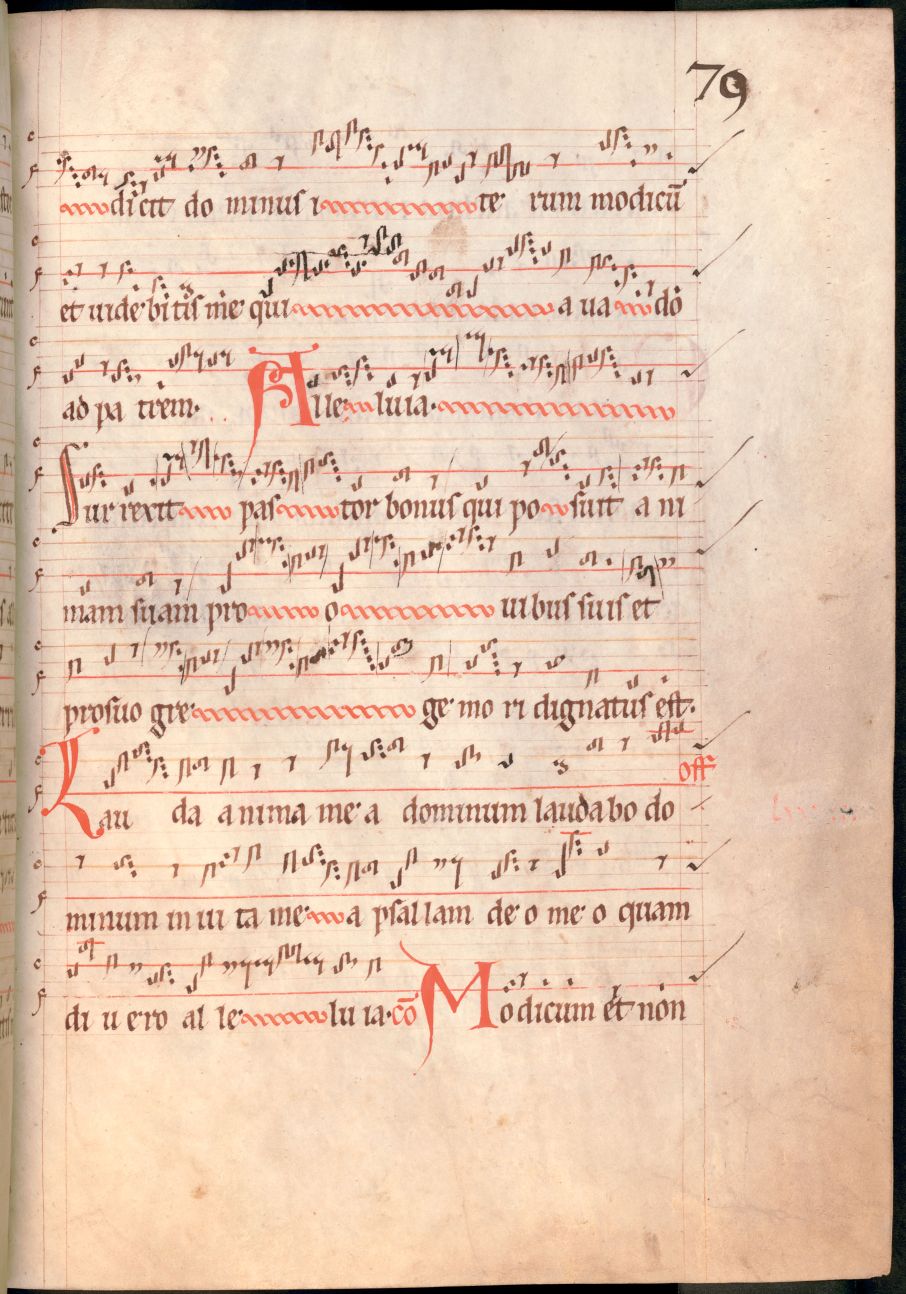 79
dicit do minus i te rum modicū
et uide bi tis me qui a ua do
ad pa trem. Alle luia.
Sur rexit pas tor bonus qui po suit a ni
mam suam pro o ui bus suis et
pro suo gre ge mo ri dignatus est.
off
Lau da anima me a dominum laudabo do
minum in ui ta me a psallam de o me o quam
di u ero al le lu ia. cō Modicum et non